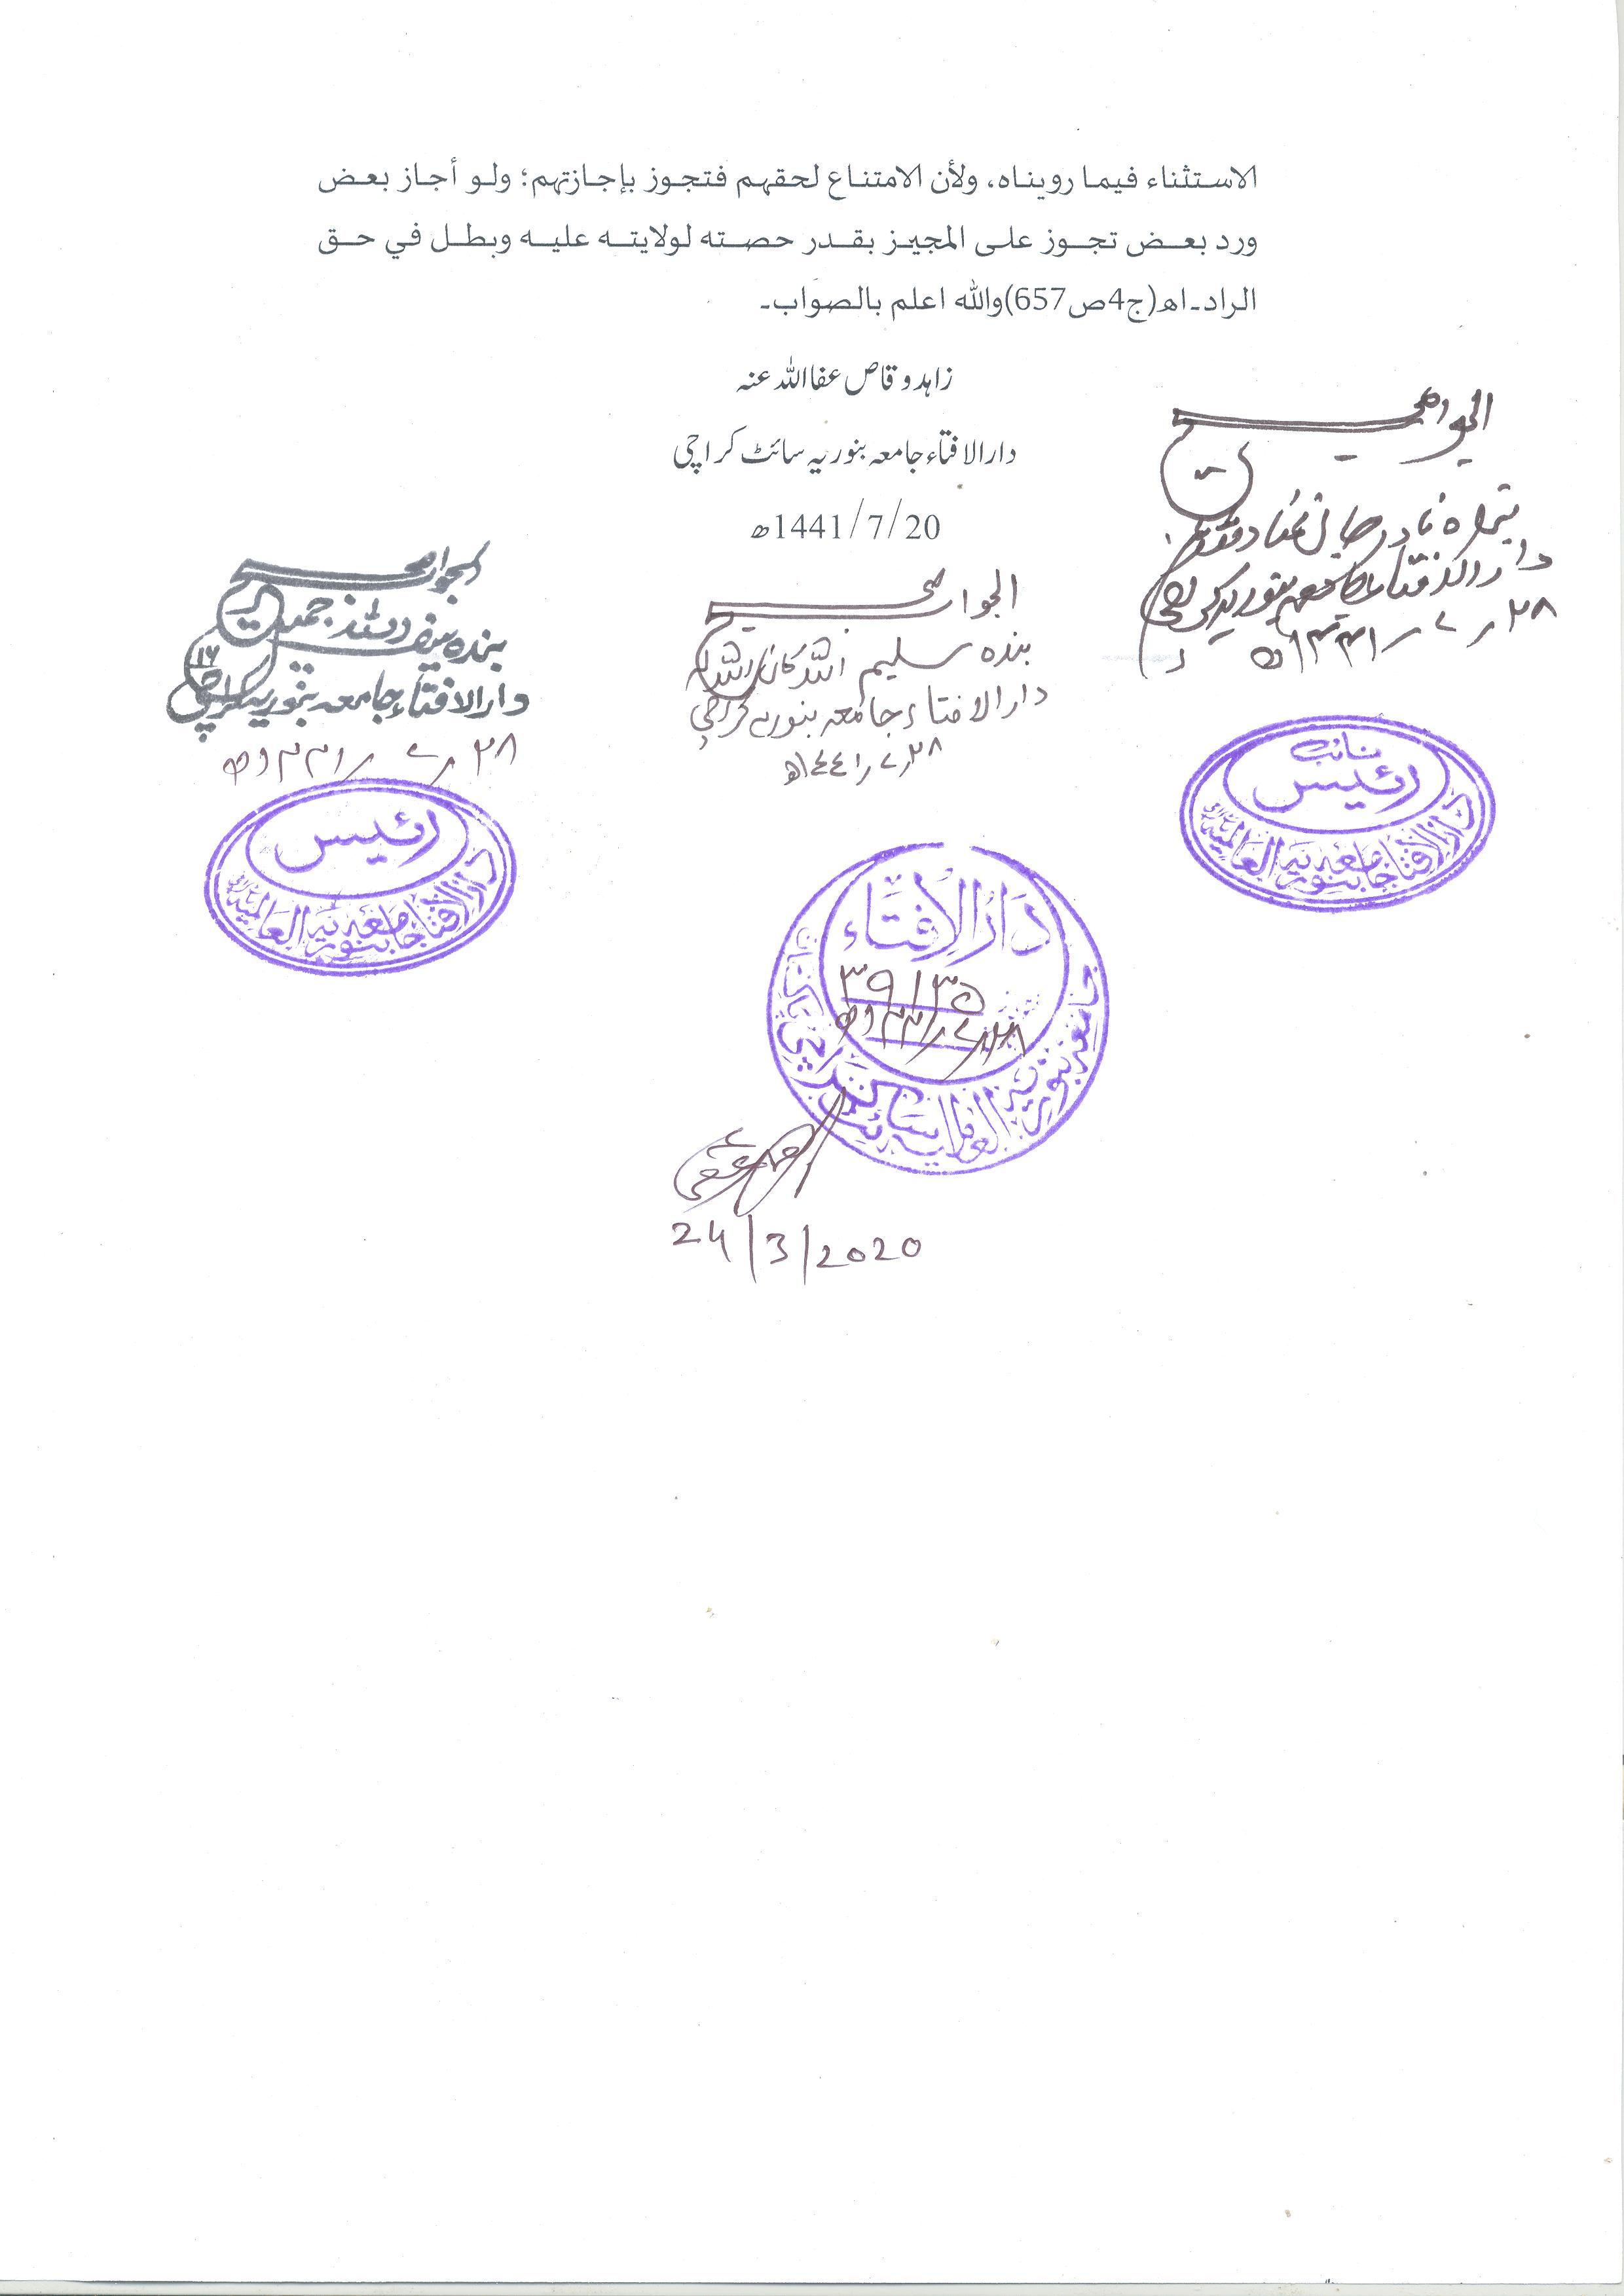 الاستثناء فيما رويناه، ولأن الامتناع لحقهم فتجوز بإجازتهم؛ ولو أجاز بعض
ورد بعض تجوز على المجيز بقدر حصته لولايته عليه وبطل في حق
الراد۔اھ(ج4ص657)واللہ اعلم بالصواب۔
زاہد وقاص عفا اللہ عنہ
دارالافتاء جامعہ بنوریہ سائٹ کراچی
20/7/1441ھ
الجواب صحیح
بندہ نادر جان
دارالافتاء جامعہ بنوریہ کراچی
۲۸/۷/۱۴۴۱ھ
الجواب صحیح
بندہ سلیم اللہ کان اللہ لہ
دارالافتاء جامعہ بنوریہ کراچی
۲۸/۷/۱٤٤۱ھ
الجواب صحیح
بندہ سیف اللہ جمیل
دارالافتاء جامعہ بنوریہ کراچی
۲۸/۷/۱۴۴۱ھ
نائب
رئیس
دارالافتاء جامعہ بنوریہ العالمیہ
رئیس
دارالافتاء جامعہ بنوریہ العالمیہ
دارالافتاء
۳۹۱۳۵
۲۸/۷/۱۴۴۱ھ
جامعہ بنوریہ العالمیہ سائٹ کراچی
24/3/2020